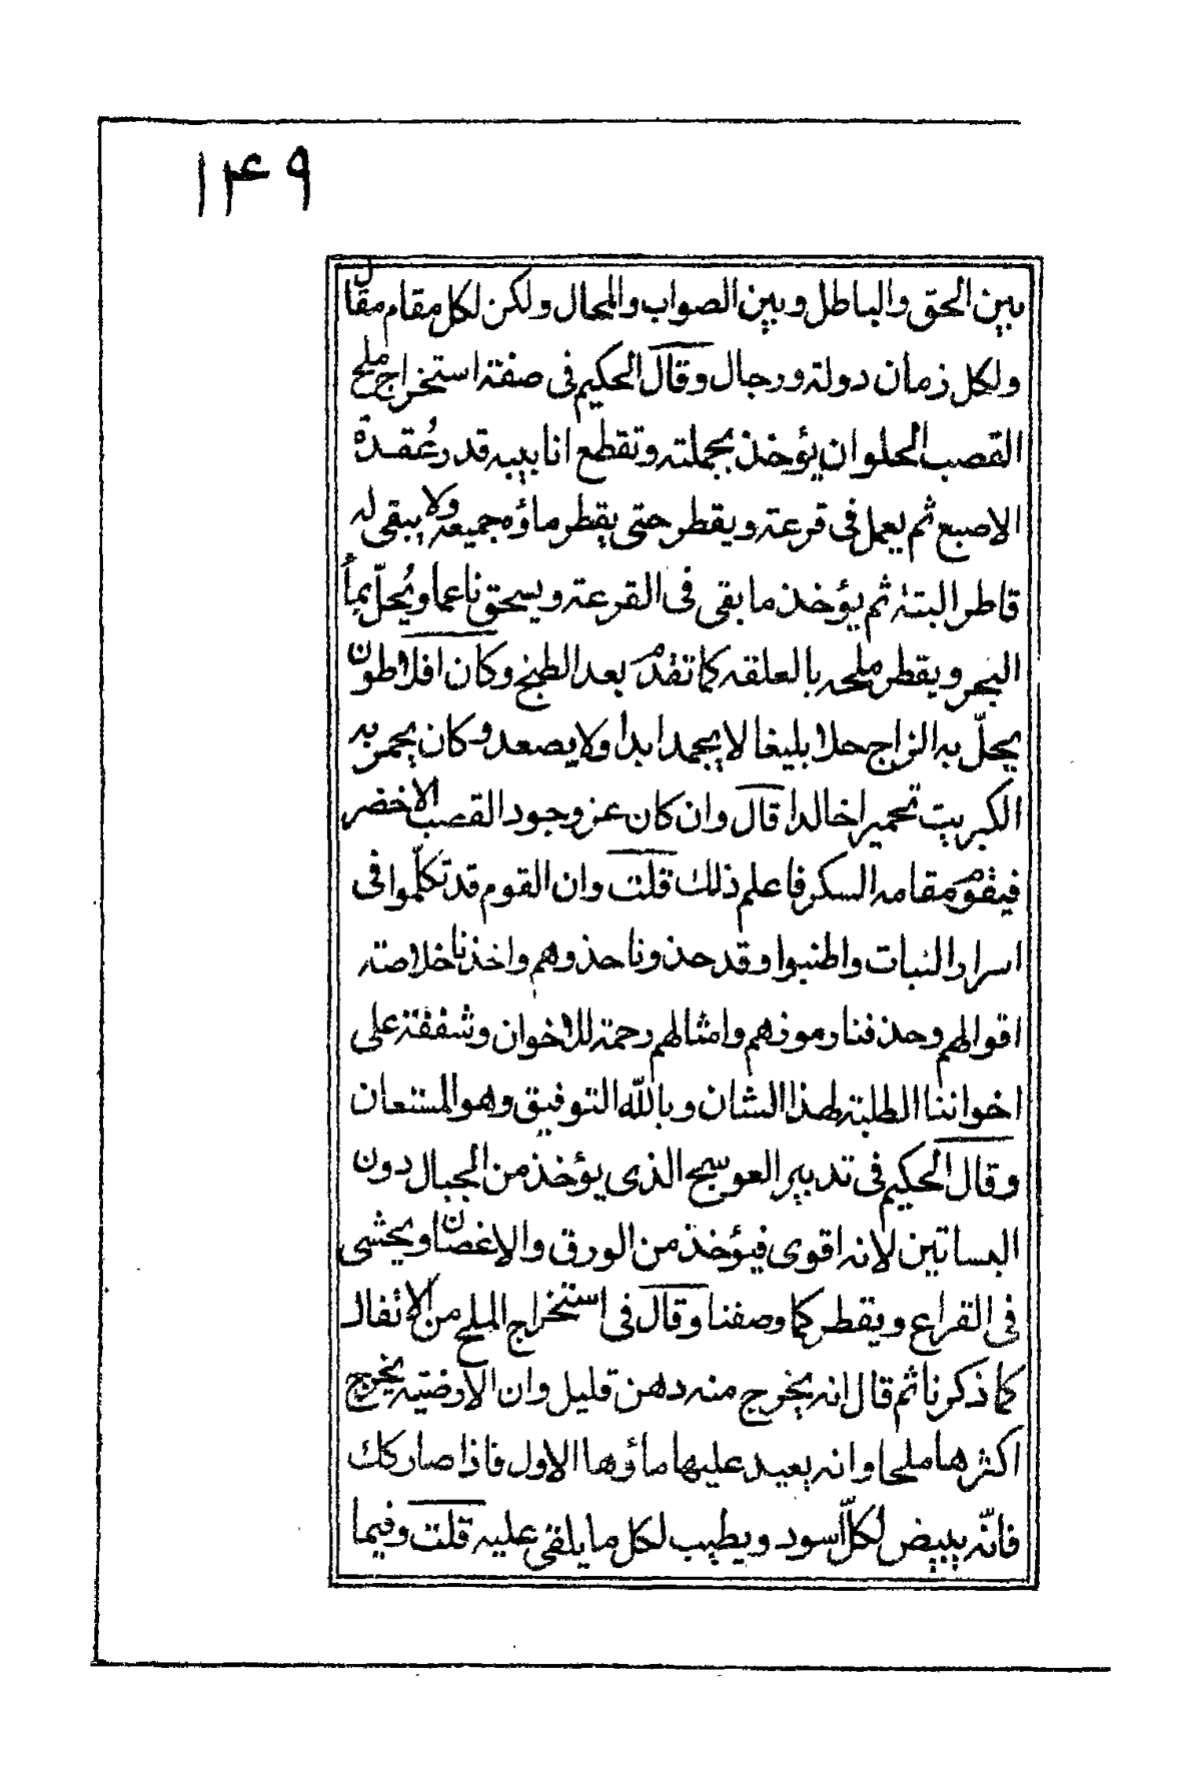 ۱۴۹
بين الحق والباطل وبين الصواب والمحال ولكن لكل مقام مقال
ولكل زمان دولة ورجال وقال الحكيم فى صفة استخراج ملح
القصب الحلو ان يؤخذ بجملته وتقطع انابيبه قدر عُقدة
الاصبع ثم يعمل فى قرعة ويقطر حتى يقطر ماؤه جميعه ولا يبقى له
قاطر البتة ثم يؤخذ ما بقى فى القرعة ويسحق ناعما ويُحلّ بمأ
البحر ويقطر ملحه بالعلقه كما تقدم بعد الطبخ وكان افلاطون
يحلّ به الزاج حلا بليغا لا يجمد ابدا ولا يصعد وكان يحمر به
الكبريت تحميرا خالدا قال وان كان عز وجود القصب الاخضر
فيقوم مقامه السكر فاعلم ذلك قلت وان القوم قد تكلّموا فى
اسرار النبات واطنبوا وقد حذونا حذوهم واخذنا خلاصة
اقوالهم وحذفنا رموزهم وامثالهم رحمة للاخوان وشفقة على
اخواننا الطلبة لهذا الشان وبالله التوفيق وهو المستعان
وقال الحكيم فى تدبير العوسج الذى يؤخذ من الجبال دون
البساتين لانه اقوى فيؤخذ من الورق والاغصان ويحشى
فى القراع ويقطر كما وصفنا وقال فى استخراج الملح من الاثفال
كما ذكرنا ثم قال انه يخرج منه دهن قليل وان الارضية يخرج
اكثرها ملحا وانه يعيد عليها ماؤها الاول فاذا صار كك
فانّه يبيض لكلّ اسود ويطيب لكل ما يلقى عليه قلت وفيما